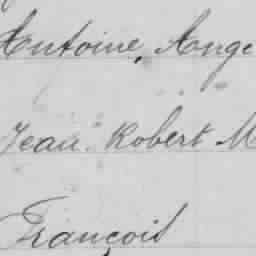 Antoine, Ange
Jean Robert M
François